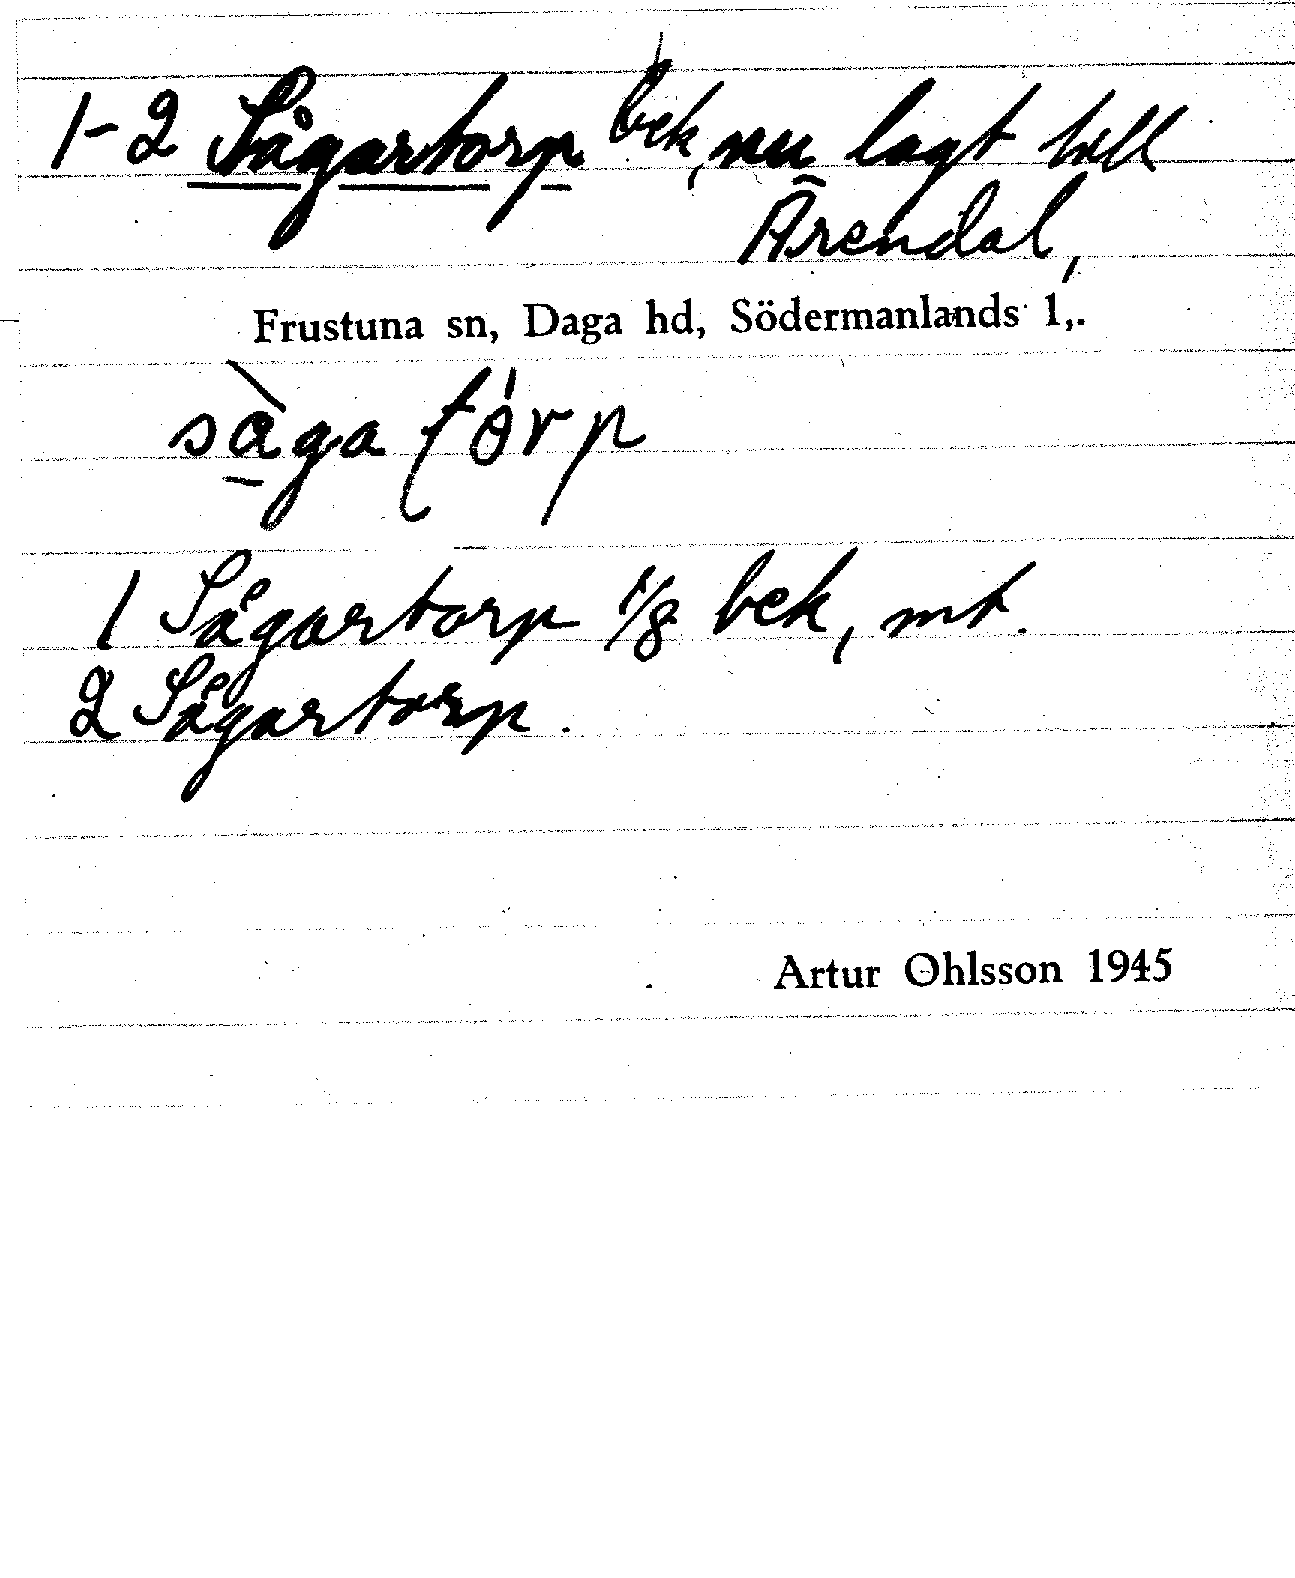 1-2 Sågartorp bek, nu lagt till
Ärendal,
Frustuna sn, Daga hd, Södermanlands l,.
sàga tórp
1 Sågartorp 1/8 bek, mt.
2 Sågartorp.
Artur Ohlsson 1945